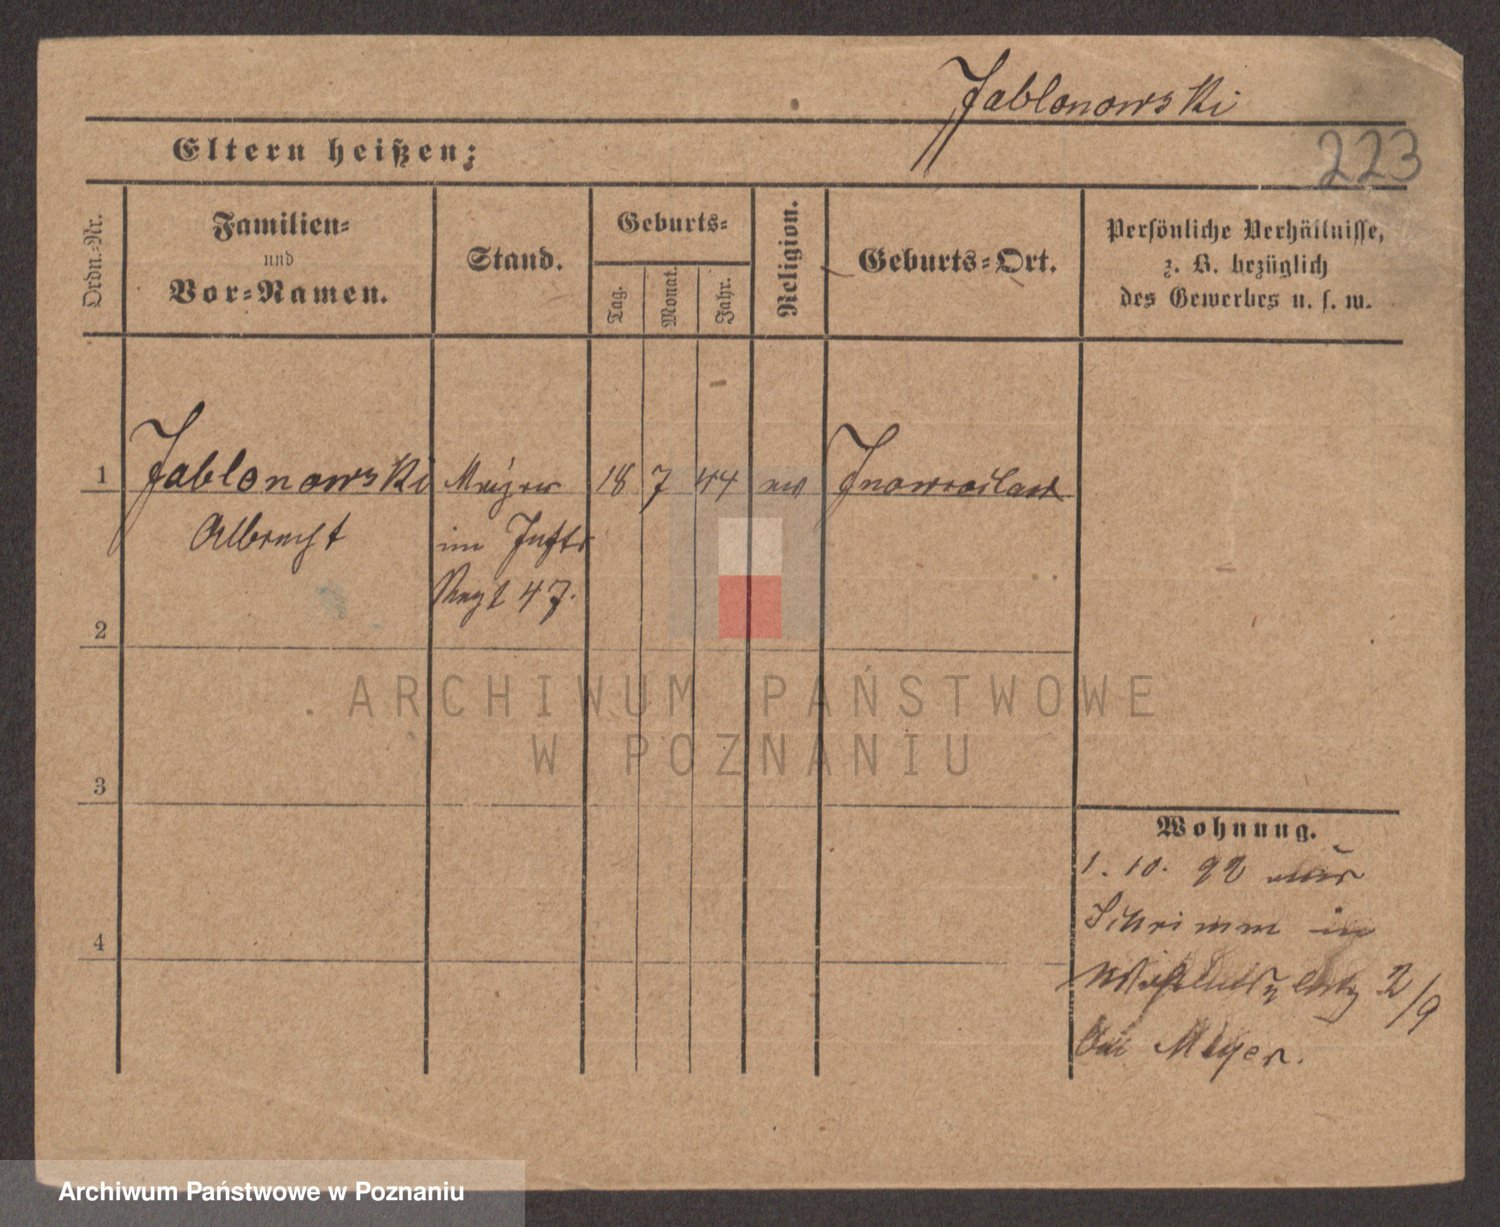 Jablonowski
223
Eltern heißen:
Ordn.-Nr.
Familien-
und
Vor-Namen.
Stand.
Geburts-
Tag.
Monat.
Jahr.
Religion.
Geburts-Ort.
Persönliche Verhältnisse,
z. B. bezüglich
des Gewerbes u. s. w.
1 Jablonowski 18 7 44
Albrecht im
Regt 47.
2
3
4
ARCHIWUM PAŃSTWOWE
W POZNANIU
Wohnung.
1. 10. 92 aus
Schrimm in
2/9
bei Meyer.
Archiwum Państwowe w Poznaniu